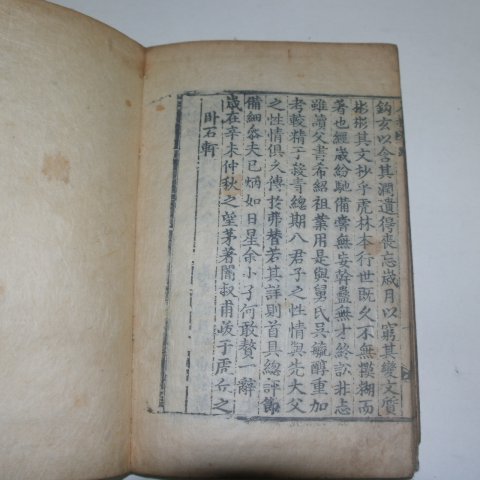 鈎玄以含其潤遺得喪忘歲月以窮其變文質
彬彬其文抄乎虎林本行世既久不無模糊而
著也經歲紛馳備嘗無安幹蠱無才終訟井忘
雖讀父書希紹祖業用是與舅氏吳毓醇重加
考較精于殺青總期八君子之性情與先大父
之性情俱久傳於弗替若其詳則首具總評篇
備細叅夫已炳如日星余小子何敢贅一辭
歲在辛未仲秋之望茅著闇叔甫跋于
之
卧石軒